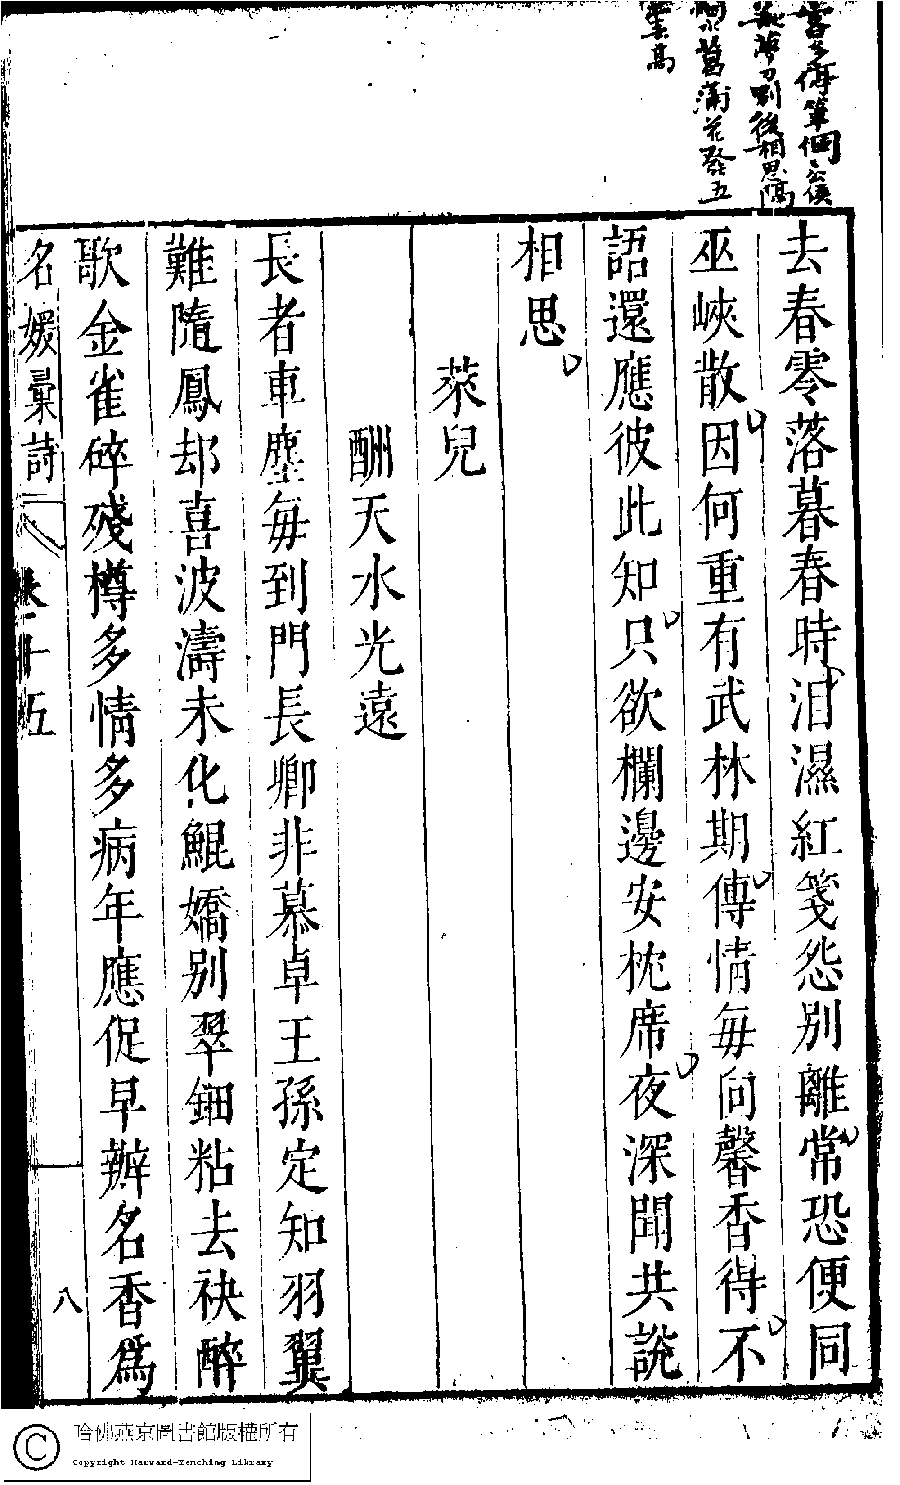 言多傳筆個個公侯
花夢刀別後相思隔
水菖蒲花發五
雲高
去春零落暮春時泪濕紅箋怨別離常恐便同
巫峽散因何重有武林期傳情每向馨香得不
語還應彼此知只欲欄邊安枕席夜深閒共說
相思
萊兒
酬天水光遠
長者車塵每到門長卿非慕卓王孫定知羽翼
難隨鳳却喜波濤未化鯤嬌別翠鈿粘去袂醉
歌金雀碎殘樽多情多病年應促早辦名香爲
名媛彙詩
卷十五
八
哈佛燕京圖書館版權所有
Copyright Harvard-Yenching Library